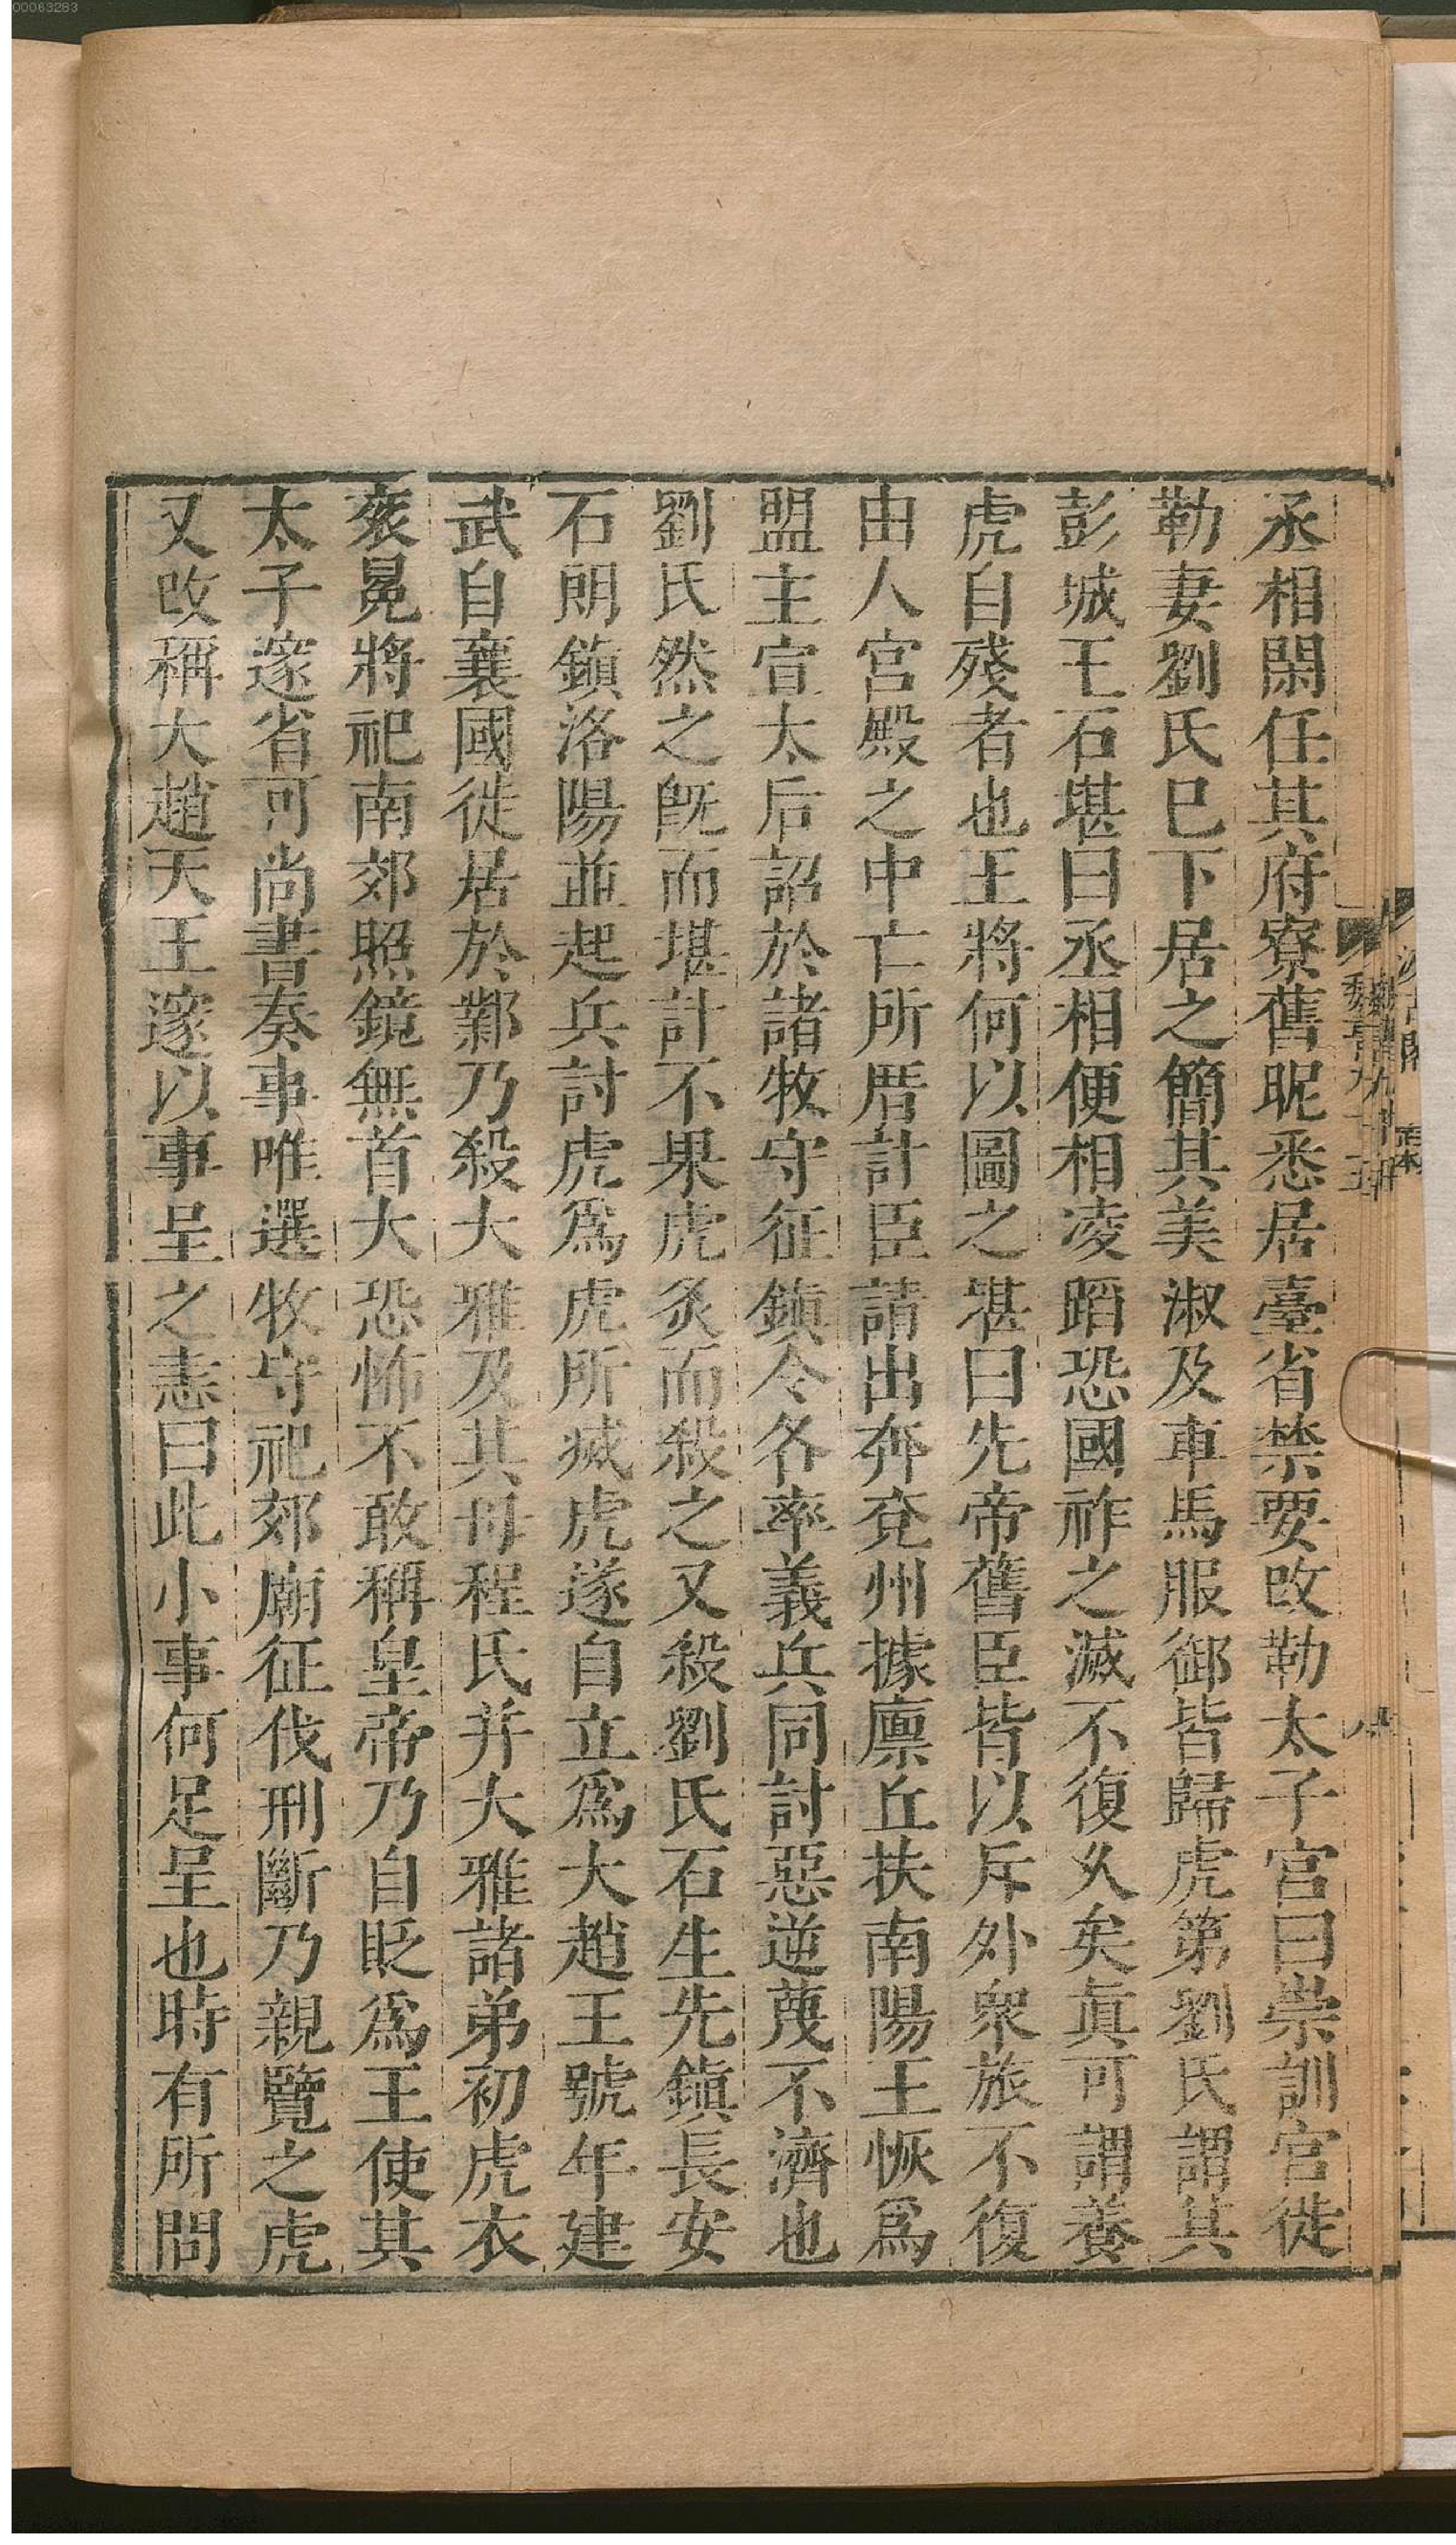 丞相閑任其府寮舊昵悉居臺省禁要改勒太子宮曰崇訓宮徙
勒妻劉氏巳下居之簡其美淑及車馬服御皆歸虎第劉氏謂其
彭城王石堪曰丞相便相凌蹈恐國祚之滅不復久矣眞可謂養
虎自殘者也王將何以圖之堪曰先帝舊臣皆以斥外衆旅不復
由人宮殿之中亡所厝計臣請出奔兗州據廩丘扶南陽王恢爲
盟主宣太后詔於諸牧守征鎮令各率義兵同討惡逆蔑不濟也
劉氏然之旣而堪計不果虎炙而殺之又殺劉氏石生先鎮長安
石朗鎮洛陽並起兵討虎爲虎所滅虎遂自立爲大趙王號年建
武自襄國徙居於鄴乃殺大雅及其母程氏并大雅諸弟初虎衣
衮冕將祀南郊照鏡無首大恐怖不敢稱皇帝乃自貶爲王使其
太子邃省可尚書奏事唯選牧守祀郊廟征伐刑斷乃親覽之虎
又改稱大趙天王邃以事呈之恚曰此小事何足呈也時有所問
00063283